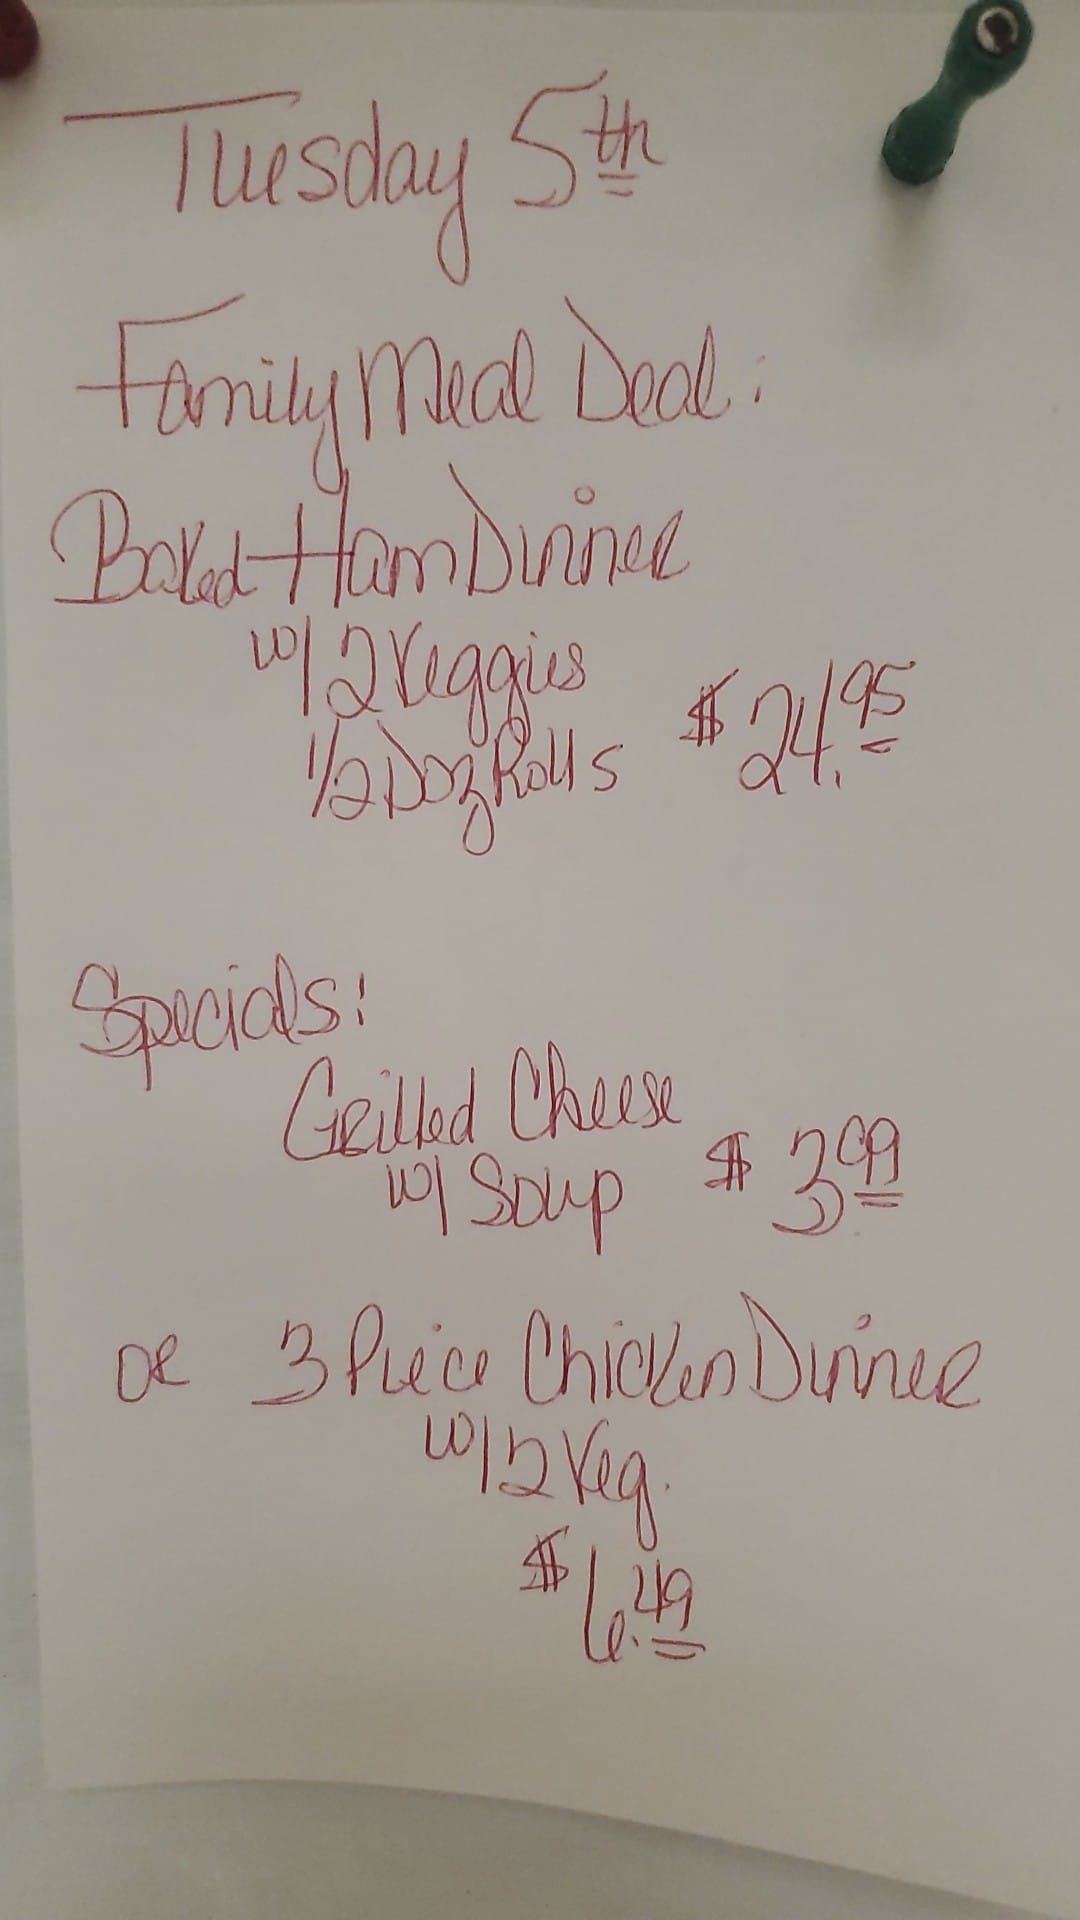 Tuesday 5th
Family Meal Deal:
Baked Ham Dinner
w/ 2 Veggies
1/2 Doz Rolls $24.95
Specials:
Grilled Cheese
w/ Soup $3.99
or 3 Piece Chicken Dinner
w/ 2 Veg.
$6.49